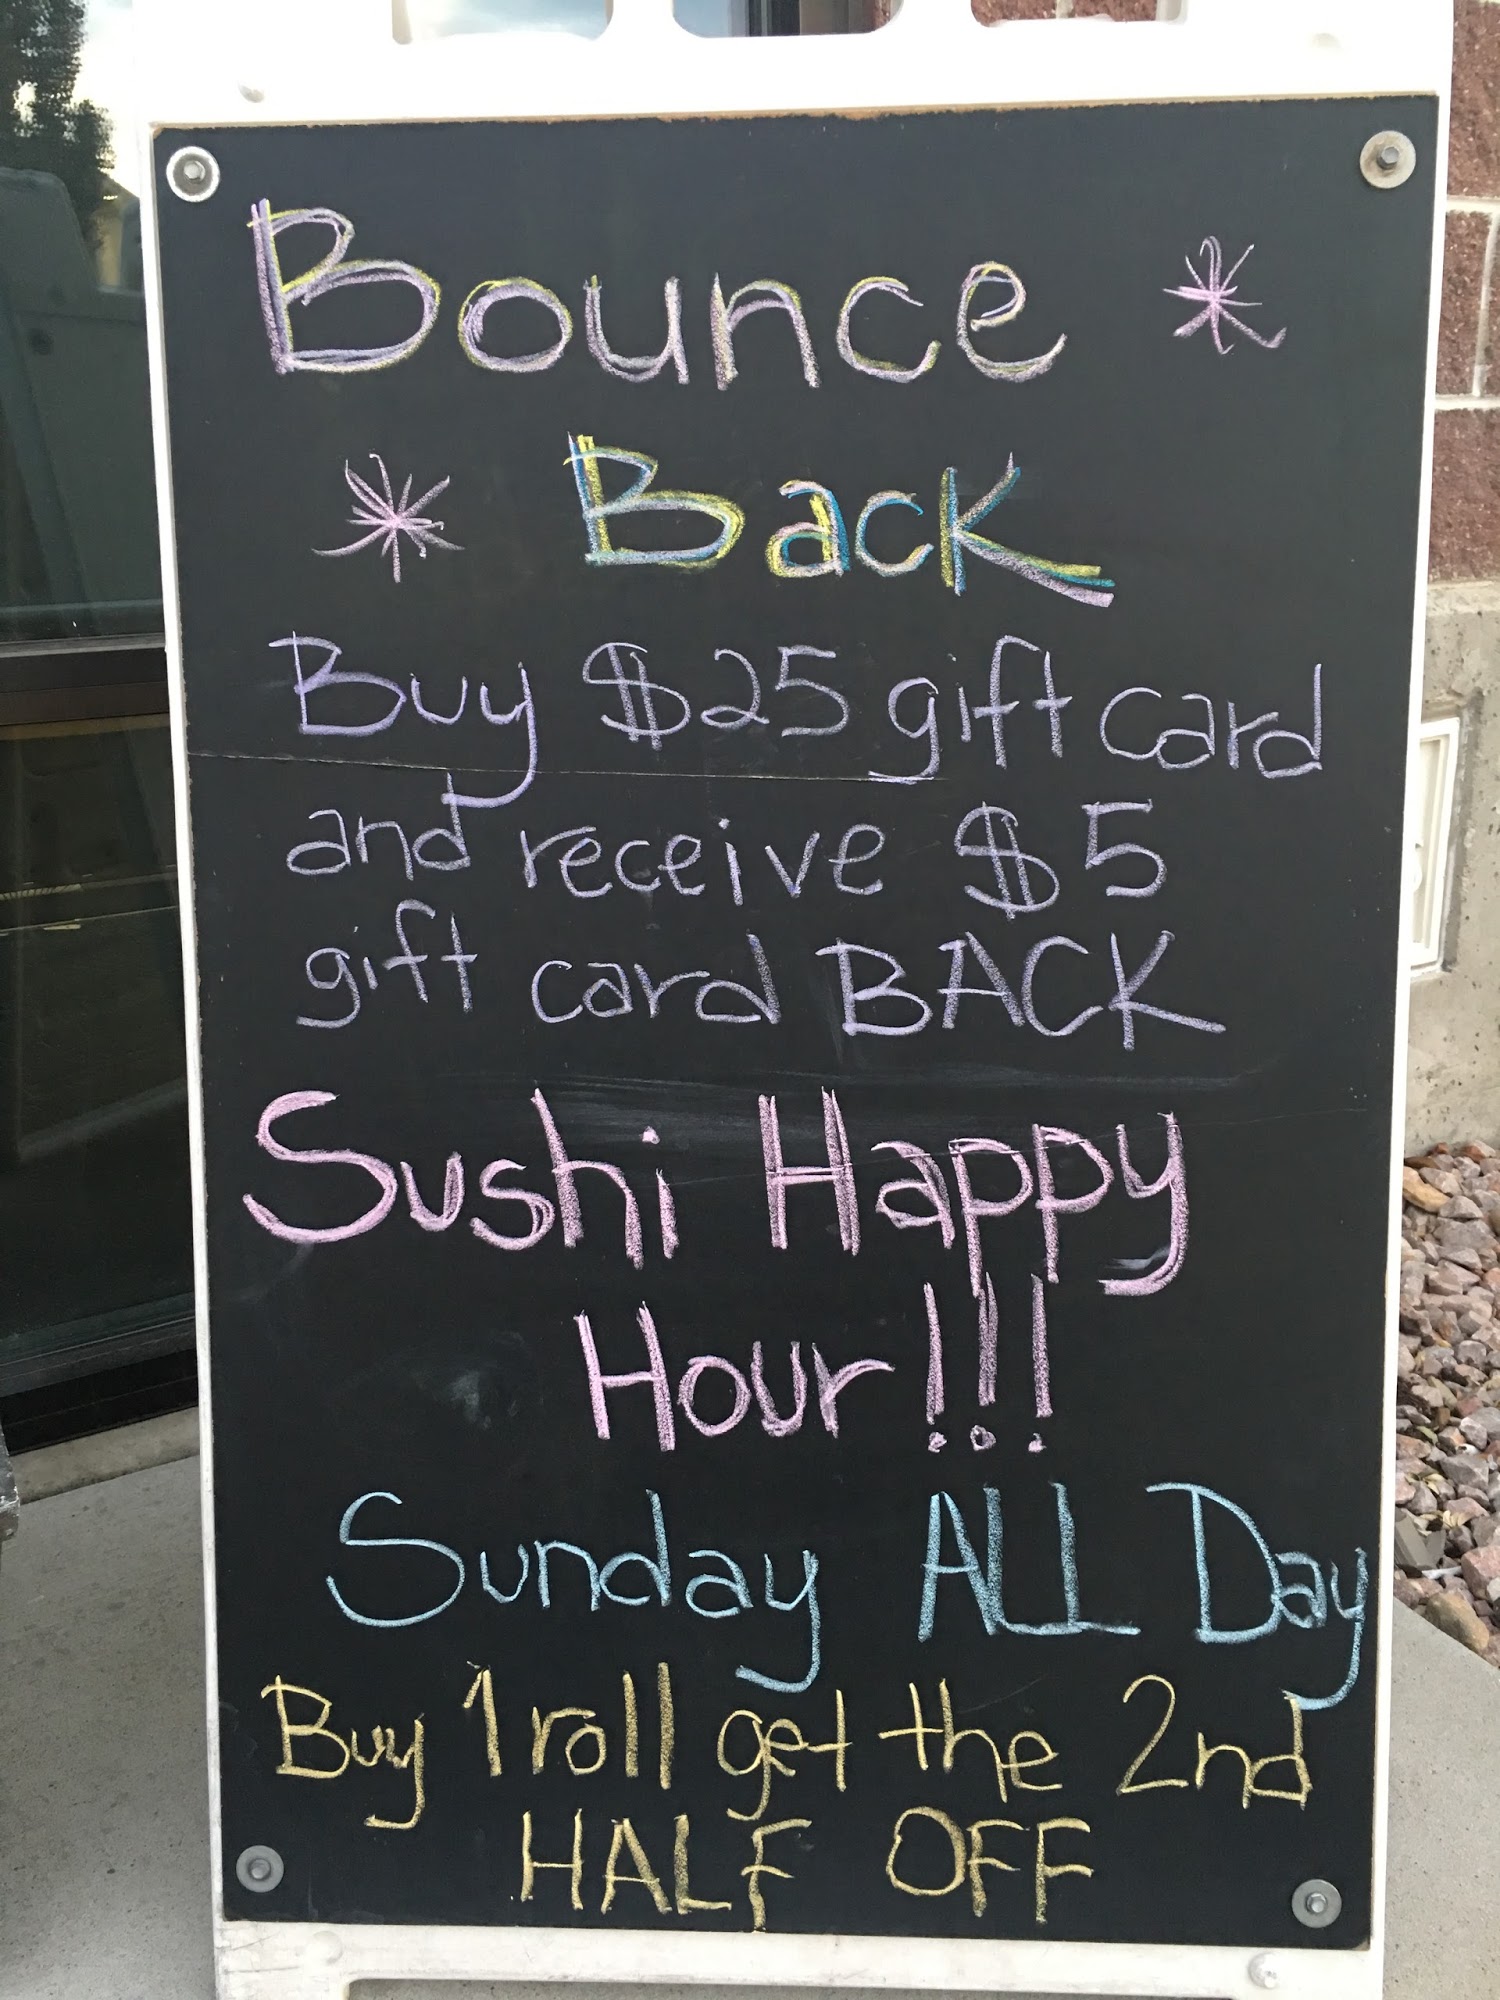 Bounce *
* Back
Buy $25 gift card
and receive $5
gift card BACK
Sushi Happy
Hour!!!
Sunday ALL Day
Buy 1 roll get the 2nd
HALF OFF